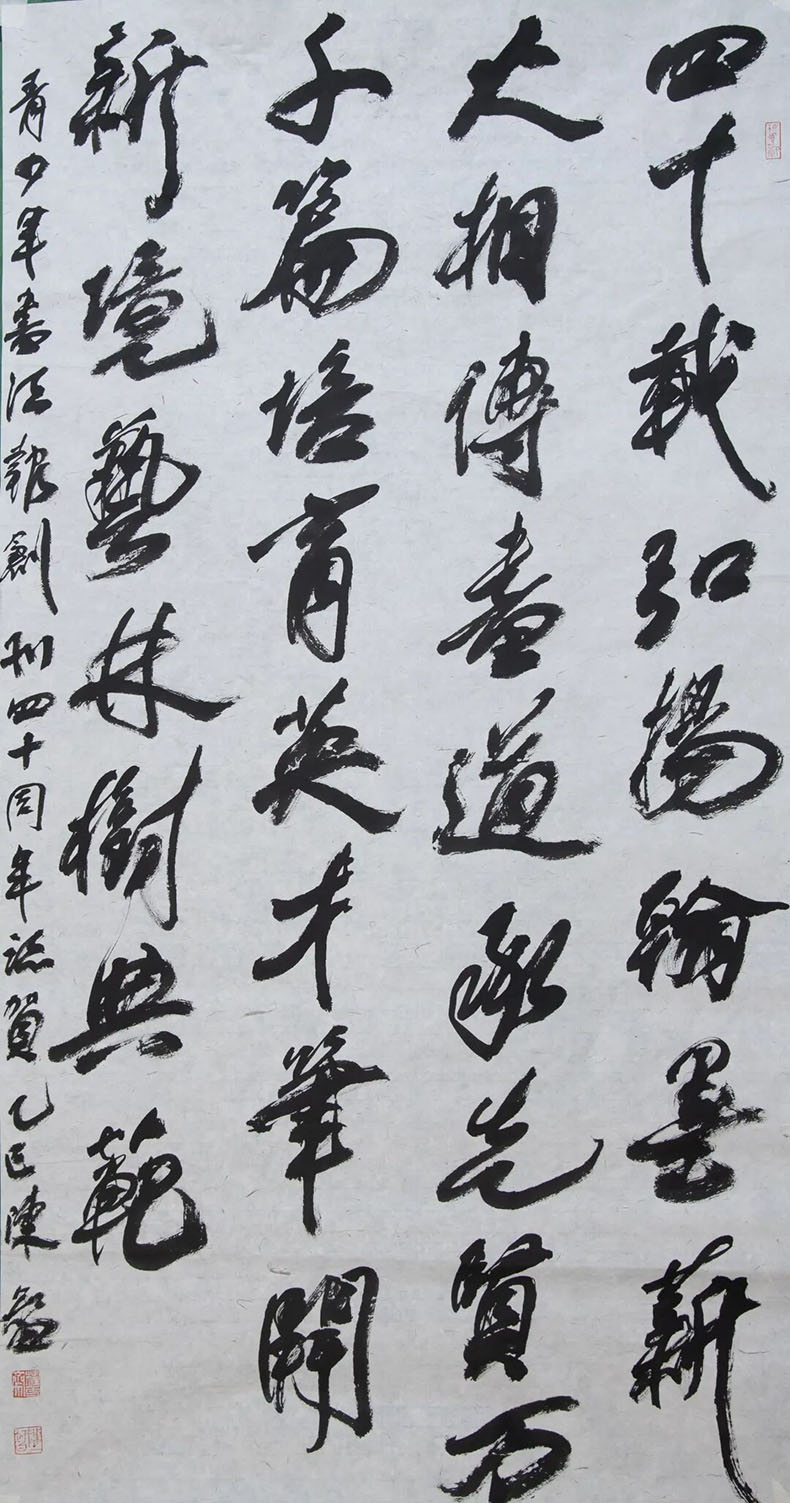 四十載弘揚翰墨薪
火相傳書道承先賢万
千篇培育英才筆開
新境藝林樹典範
青少年書法報創刊四十周年誌賀乙巳陳